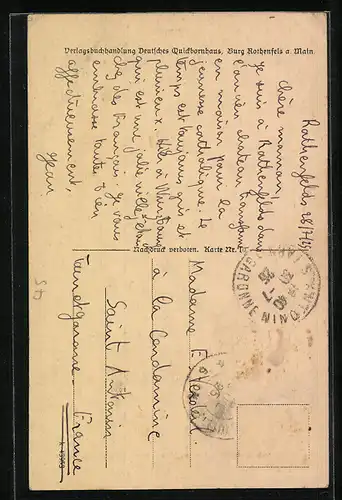 Verlagsbuchhandlung Deutsches Quickbornhaus, Burg Rothenfels a. Main
Rothenfelds 28/7/
Chère maman
Je suis à Rothenfelds dans
l'ancien chateau transformé
en maison pour la
jeunesse catholique. Le
temps est toujours gris et
pluvieux. Hier à Würzbourg
qui est une jolie ville
des Français. Je vous
embrasse toutes bien
affectueusement,
Jean
Nachdruck verboten. Karte Nr.
Madame
à la Condamine
Saint Antonin
Tarn et Garonne France
GARONNE